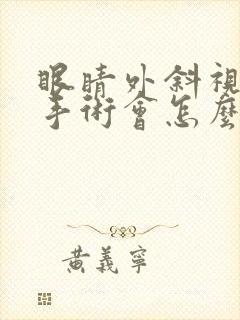 眼睛外斜視
手術會怎麼
黃義寧